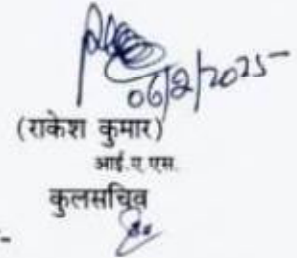 06/2/2025
(राकेश कुमार)
आई.ए एस.
कुलसचिव